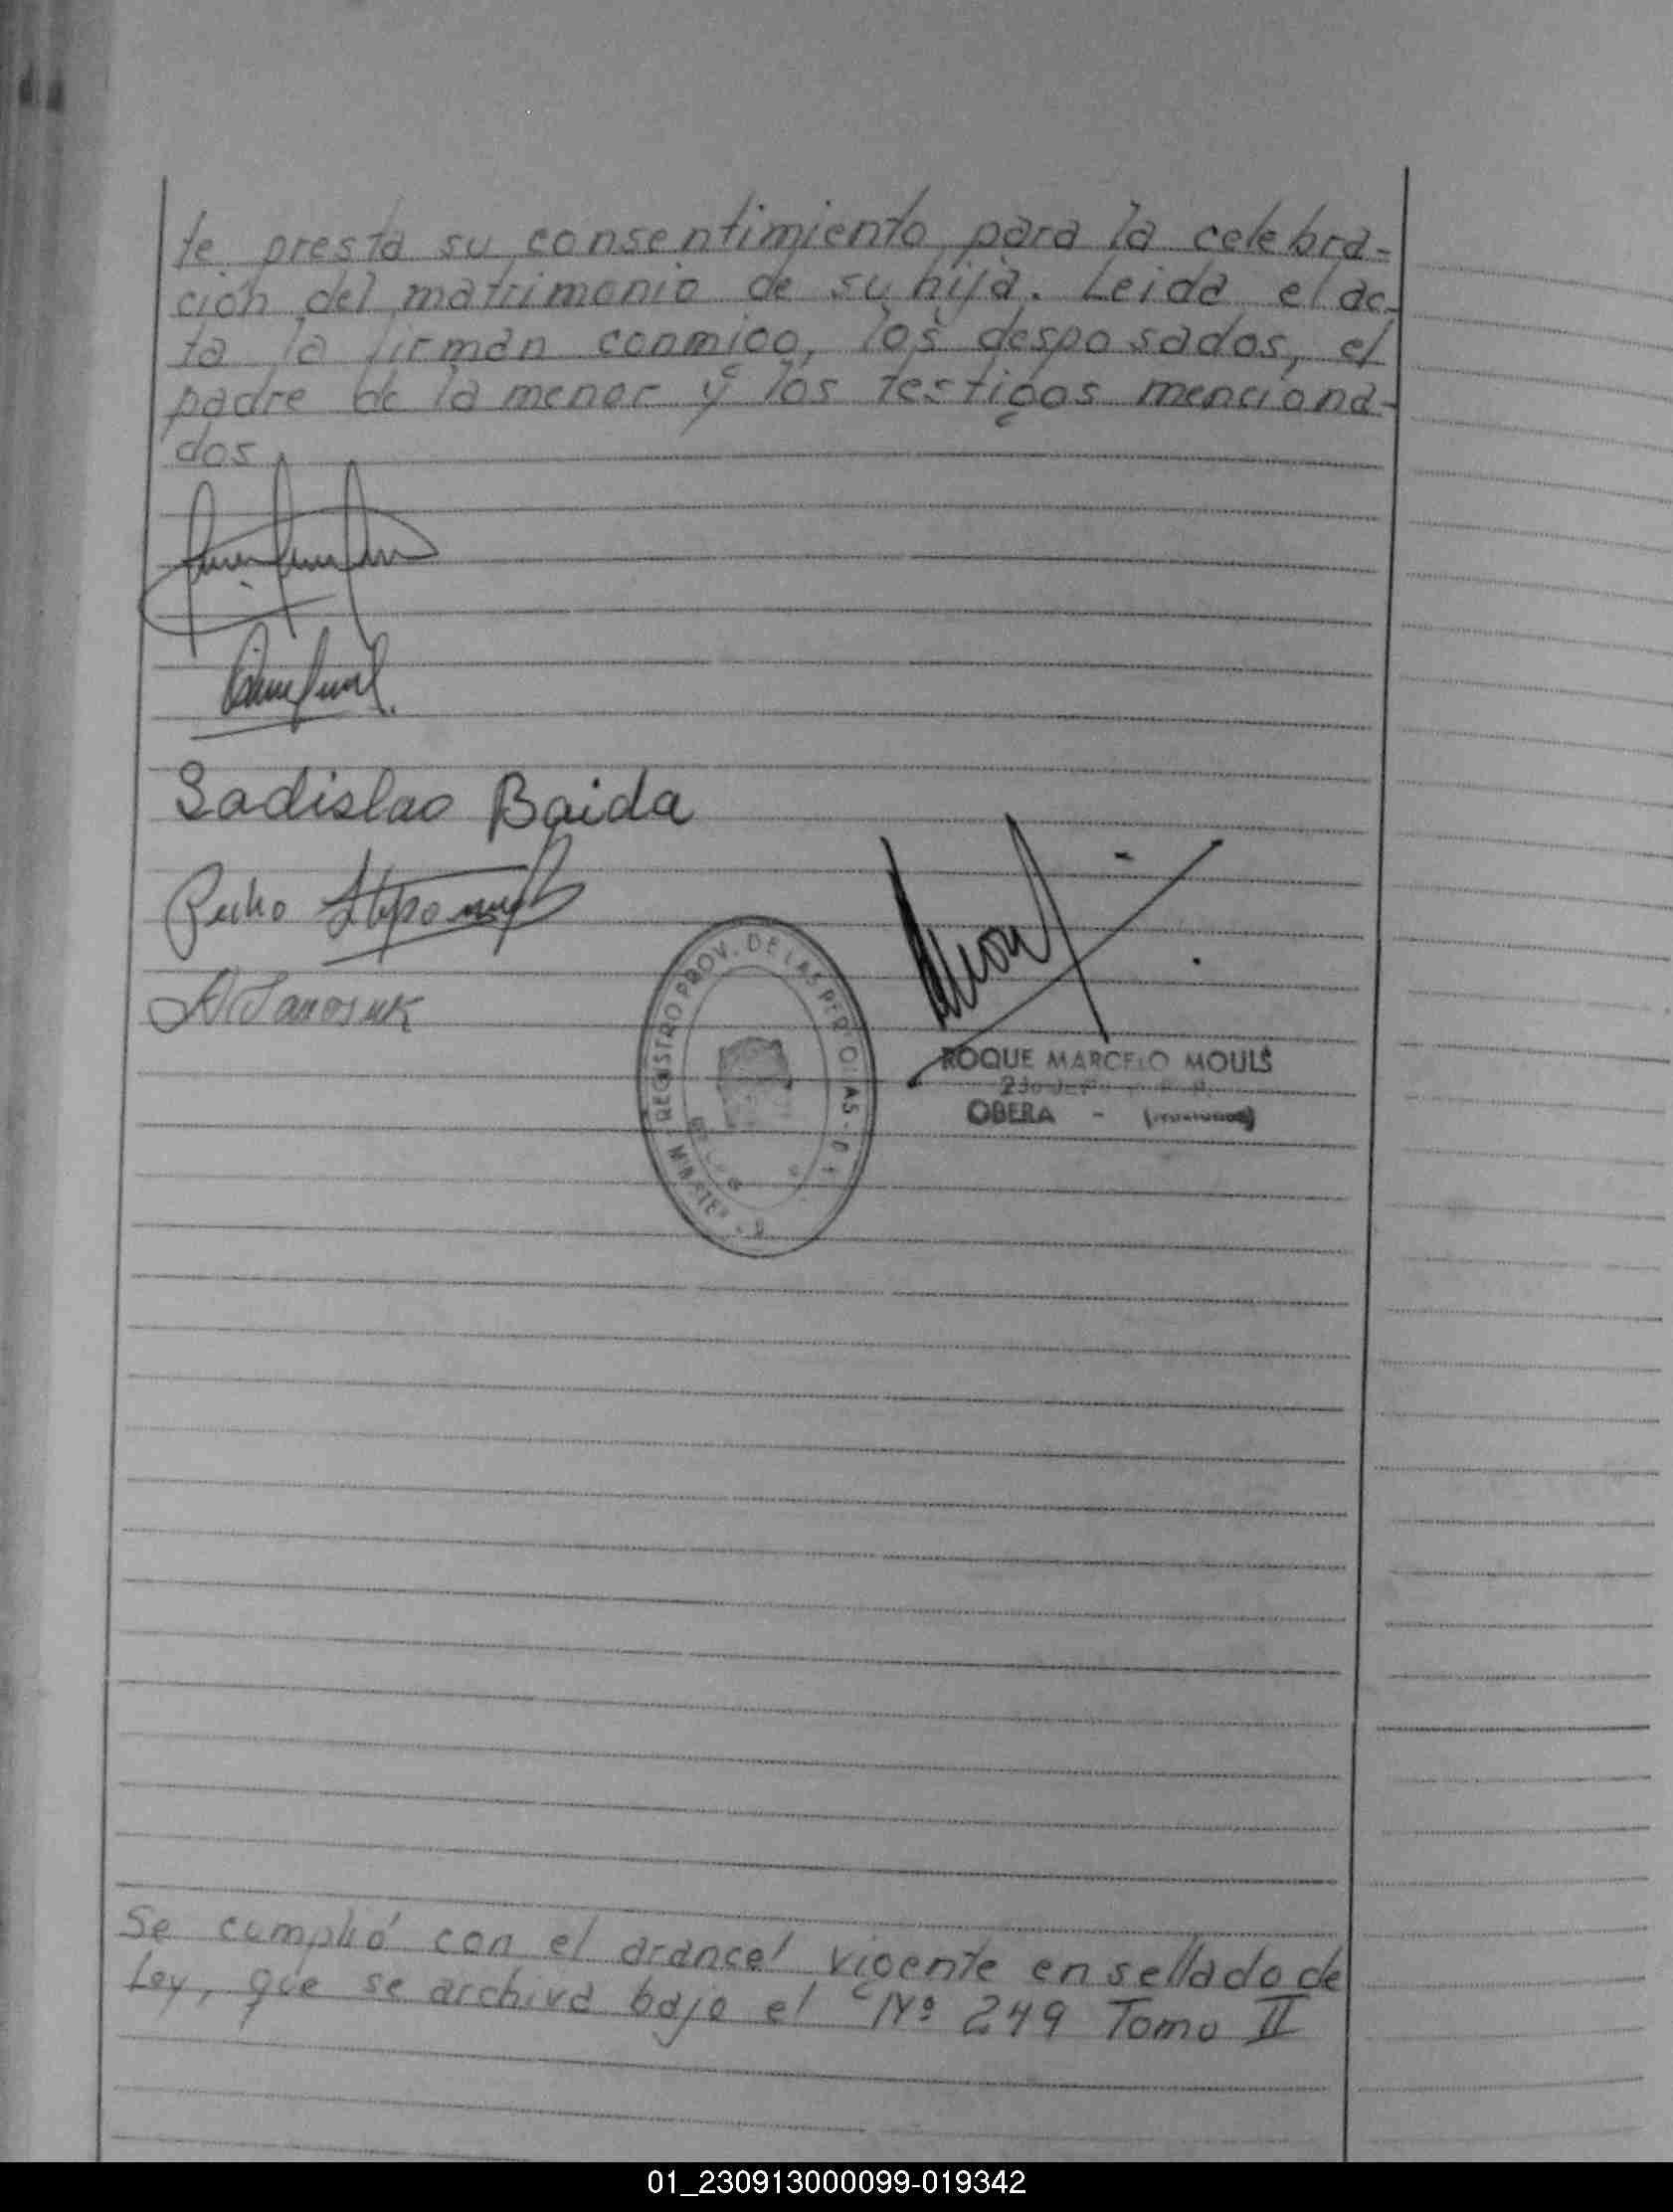 te presta su consentimiento para la celebra-
ción del matrimonio de su hija. Leida el ac-
ta la firman conmigo, los desposados, el
padre de la menor y los testigos menciona-
dos
Ladislao Baida
Pedro
REGISTRO PROV. DE LAS PERSONAS
ROQUE MARCELO MOULS
OBERA -
Se cumplió con el arancel vigente en sellado de
Ley, que se archiva bajo el Nº 249 Tomo II
01_230913000099-019342